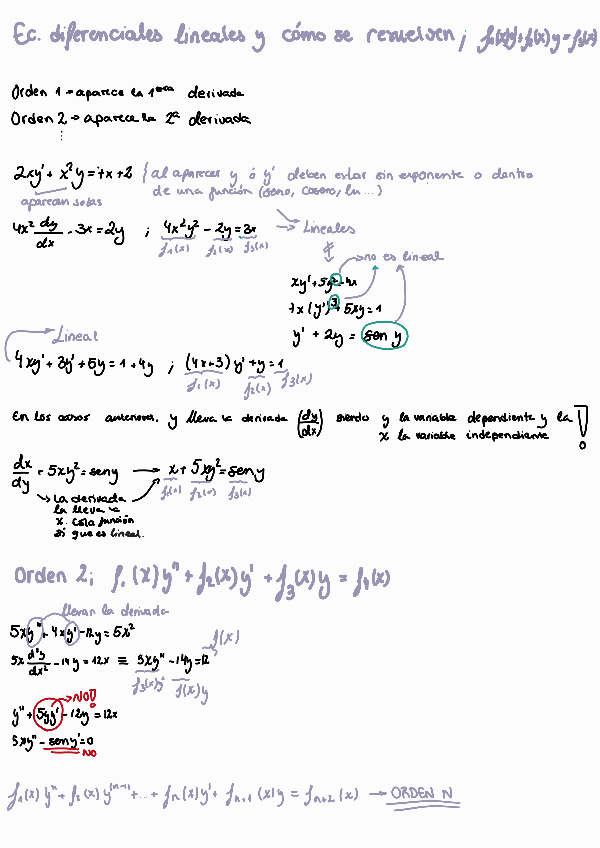 Ec. diferenciales lineales y cómo se resuelven; f₁(x)y'+f₂(x)y=f₃(x)
Orden 1 → aparece la 1era derivada
Orden 2 → aparece la 2ª derivada
⋮
2xy' + x²y = 7x + 2 / al aparecer y ó y' deben estar sin exponente o dentro
de una función (seno, coseno, ln...)
aparecen solas
→ Lineales
4x² dy/dx - 3x = 2y ; 4x²y' - 2y = 3x
f₁(x) f₂(x) f₃(x)
→ no es lineal
xy' + 5y² = 4x
7x (y')³ + 5xy = 1
y' + 2y = sen y
Lineal
4xy' + 3y' + 5y = 1 + 4y ; (4x+3) y' + y = 1
f₁(x) f₂(x) f₃(x)
En los casos anteriores, y lleva la derivada (dy/dx) siendo y la variable dependiente y la
x la variable independiente !
dx/dy + 5xy² = sen y → x + 5xy² = sen y
f₁(x) f₂(x) f₃(x)
→ La derivada
la lleva la
x. Esta función
sí que es lineal.
Orden 2; f₁(x)y'' + f₂(x)y' + f₃(x)y = f₄(x)
llevan la derivada
5xy'' + 4xy' - 12y = 5x²
f(x)
5x d²y/dx² - 14y = 12x ≡ 5xy'' - 14y = 12
f₃(x)y'' f(x)y
→ NO!!
y'' + 5yy' - 12y = 12x
5xy'' - sen y' = 0
NO
f₁(x) yⁿ + f₂(x) y⁽ⁿ⁻¹⁾ + ... + fn(x)y' + fn+1(x)y = fn+2(x) → ORDEN N